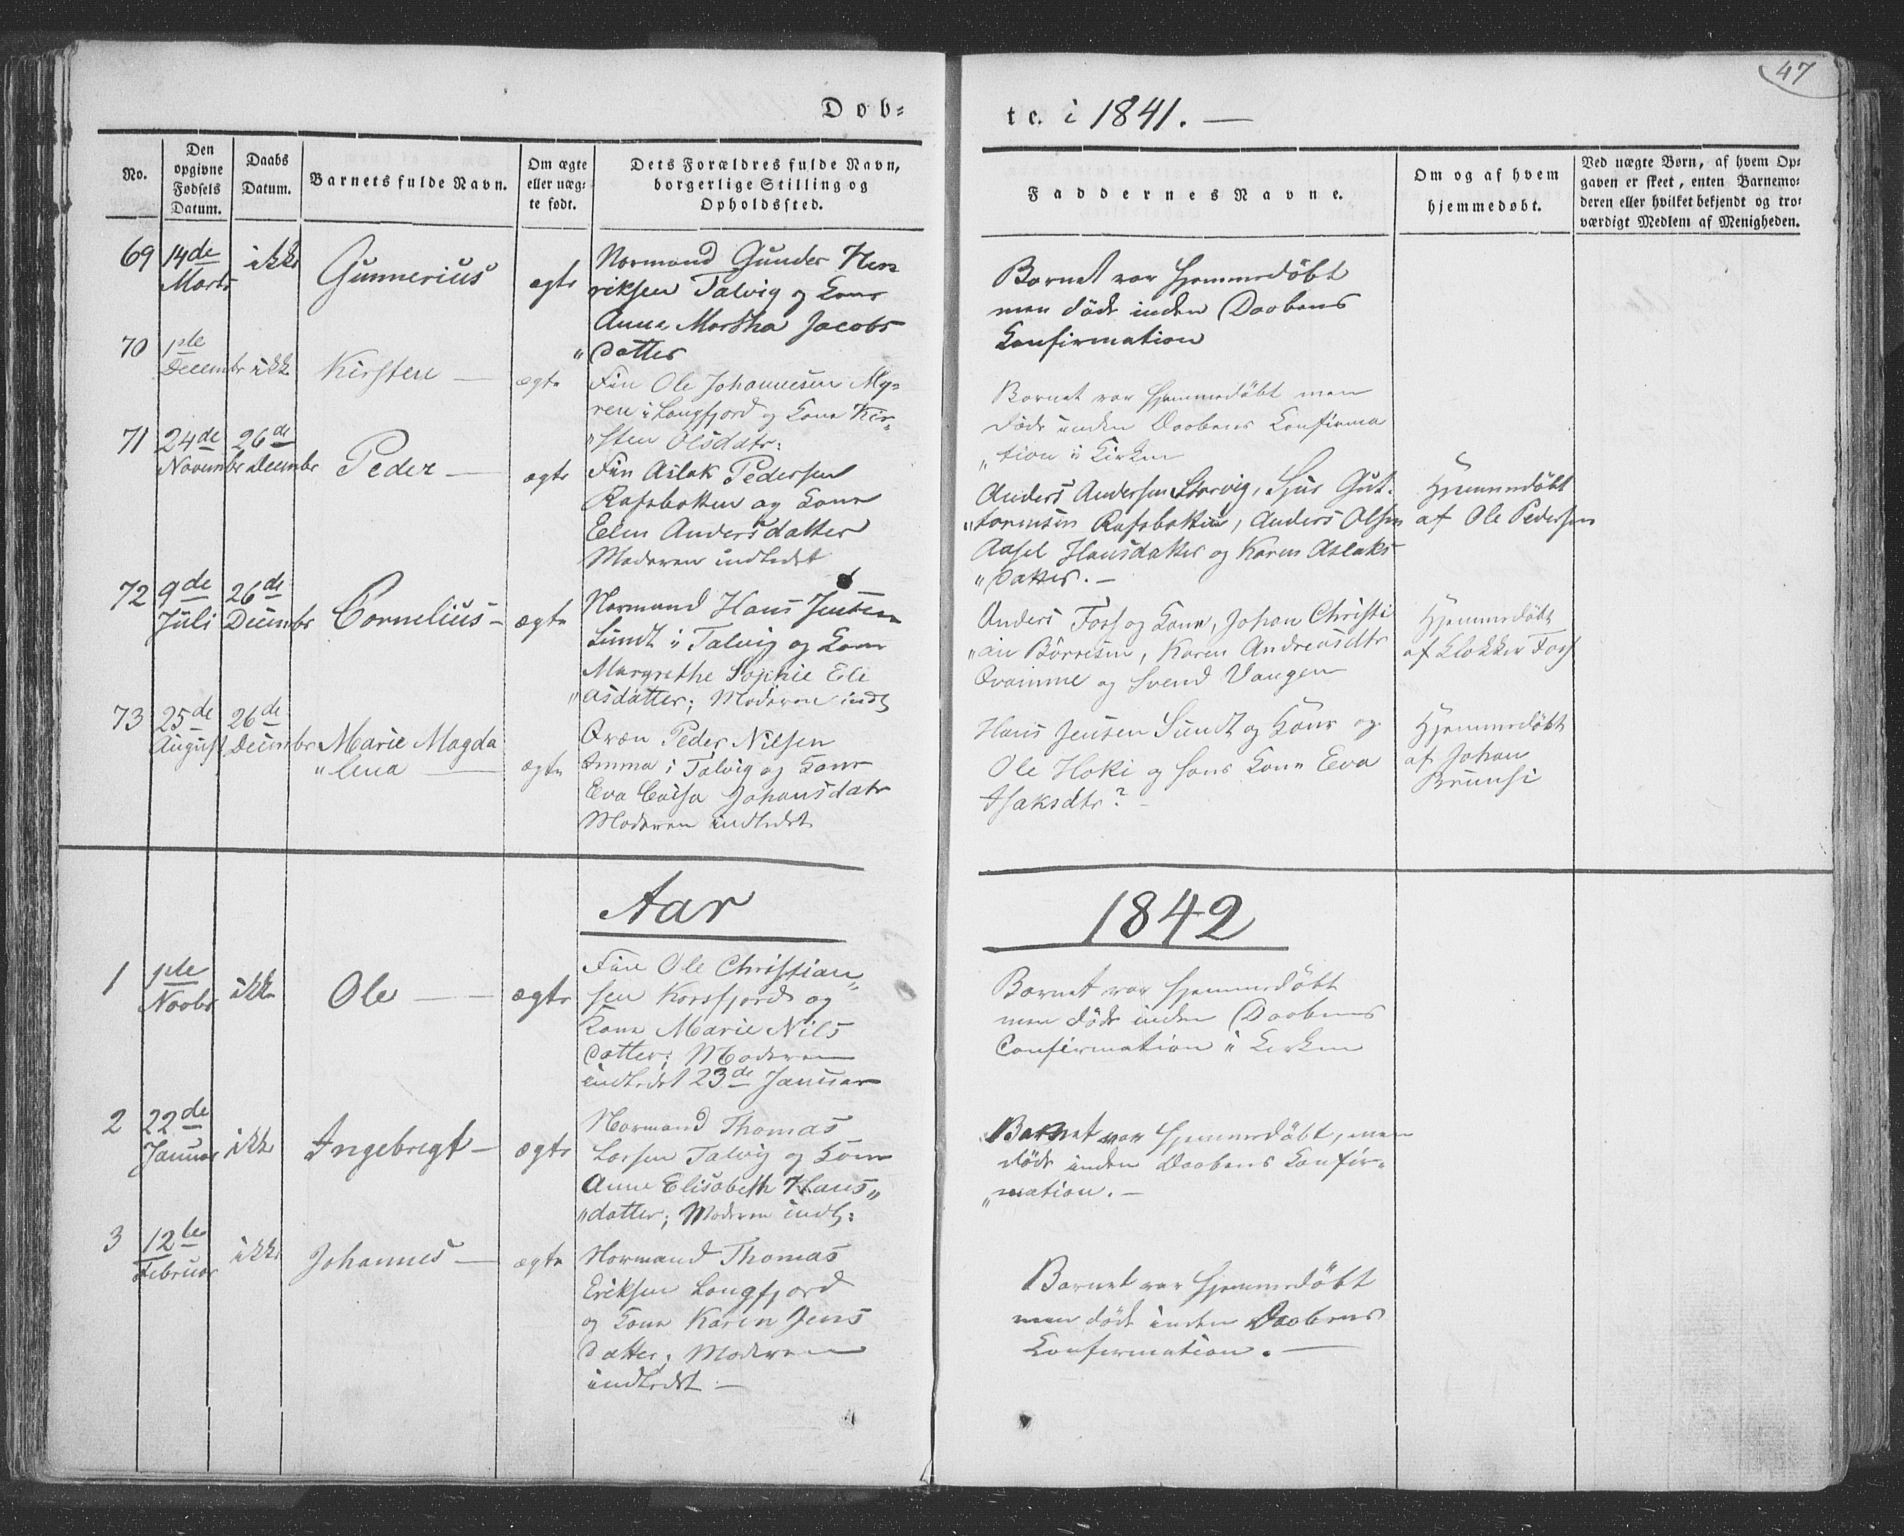 47
Døb-
te. i 1841. —
No.
Den opgivne Fødsels Datum.
Daabs Datum.
Barnets fulde Navn.
Om ægte eller uægte født.
Dets Forældres fulde Navn, borgerlige Stilling og Opholdssted.
Faddernes Navne.
Om og af hvem hjemmedøbt.
Ved uægte Børn, af hvem Opgaven er skeet, enten Barnemoderen eller hvilket bekjendt og troværdigt Medlem af Menigheden.
69 14de Marts ikke Gunnerius ægte
Normand Gunder Hen
riksen Talvig og Kone
Anne Martha Jacobs
"datter
Barnet var hjemmedøbt
men døde inden Daabens
Confirmation
70 1ste December ikke Kirsten — ægte
Fin Ole Johannesen My-
ren i Langfjord og Kone Kir-
"sten Olsdatr:
Barnet var hjemmedøbt men
døde inden Daabens Confirma
"tion i Kirken
71 24de November 26de December Peder — ægte
Fin Aslak Pedersen
Rafsbotten og Kone
Elen Andersdatter
Moderen indledet
Anders Andersen Storvig, Sjur Gut-
"tormsen Rafsbotten, Anders Olsen
Aasel Hansdatter og Karen Aslaks
"datter. —
Hjemmedøbt
af Ole Pedersen
72 9de Juli 26de December Cornelius — ægte
Normand Hans Jensen
Sundt i Talvig og Kone
Margrethe Sophie Eli
"asdatter; Moderen indl
Anders Foss og Kone, Johan Christi
"an Børresen, Karen Andreasdtr
Qvainme og Svend Vangen
Hjemmedøbt
af Klokker Foss
73 25de August 26de December Marie Magda
"lena — ægte
Qvæn Peder Nilsen
Amma i Talvig og Kone
Eva Caisa Johansdatr
Moderen indledet
Hans Jensen Sundt og Kone og
Ole Hoki og hans Kone Eva
Isaksdtr? —
Hjemmedøbt
af Johan
Brunsi
Aar 1842
1 1ste Novbr ikke Ole — — ægte
Fin Ole Christian
"sen Korsfjord og
Kone Marie Nils
datter; Moderen
indledet 23de Januar
Barnet var hjemmedøbt
men døde inden Daabens
Confirmation i Kirken
2 22de Januar ikke Ingebregt — ægte
Normand Thomas
Larsen Talvig og Kone
Anne Elisabeth Hans"
"datter; Moderen indl:
Barnet var hjemmedøbt, men
døde inden Daabens Confir-
"mation. —
3 12te Februar ikke Johannes — ægte
Normand Thomas
Eriksen Langfjord
og Kone Karen Jens
datter; Moderen
indledet —
Barnet var hjemmedøbt
men døde inden Daabens
Confirmation. —